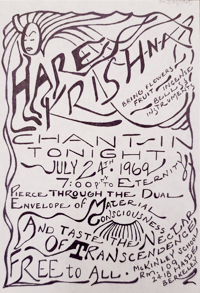 HARE
KRISHNA
BRING FLOWERS
FRUIT INCENSE
INSTRUMENTS
CHANT-IN
TONIGHT
JULY 24TH 1969
7:00 PM TO ETERNITY
PIERCE THROUGH THE DUAL
ENVELOPE OF MATERIAL
CONSCIOUSNESS
AND TASTE THE NECTAR
OF TRANSCENDENCE
MCKINLEY SCHOOL
FREE TO ALL.